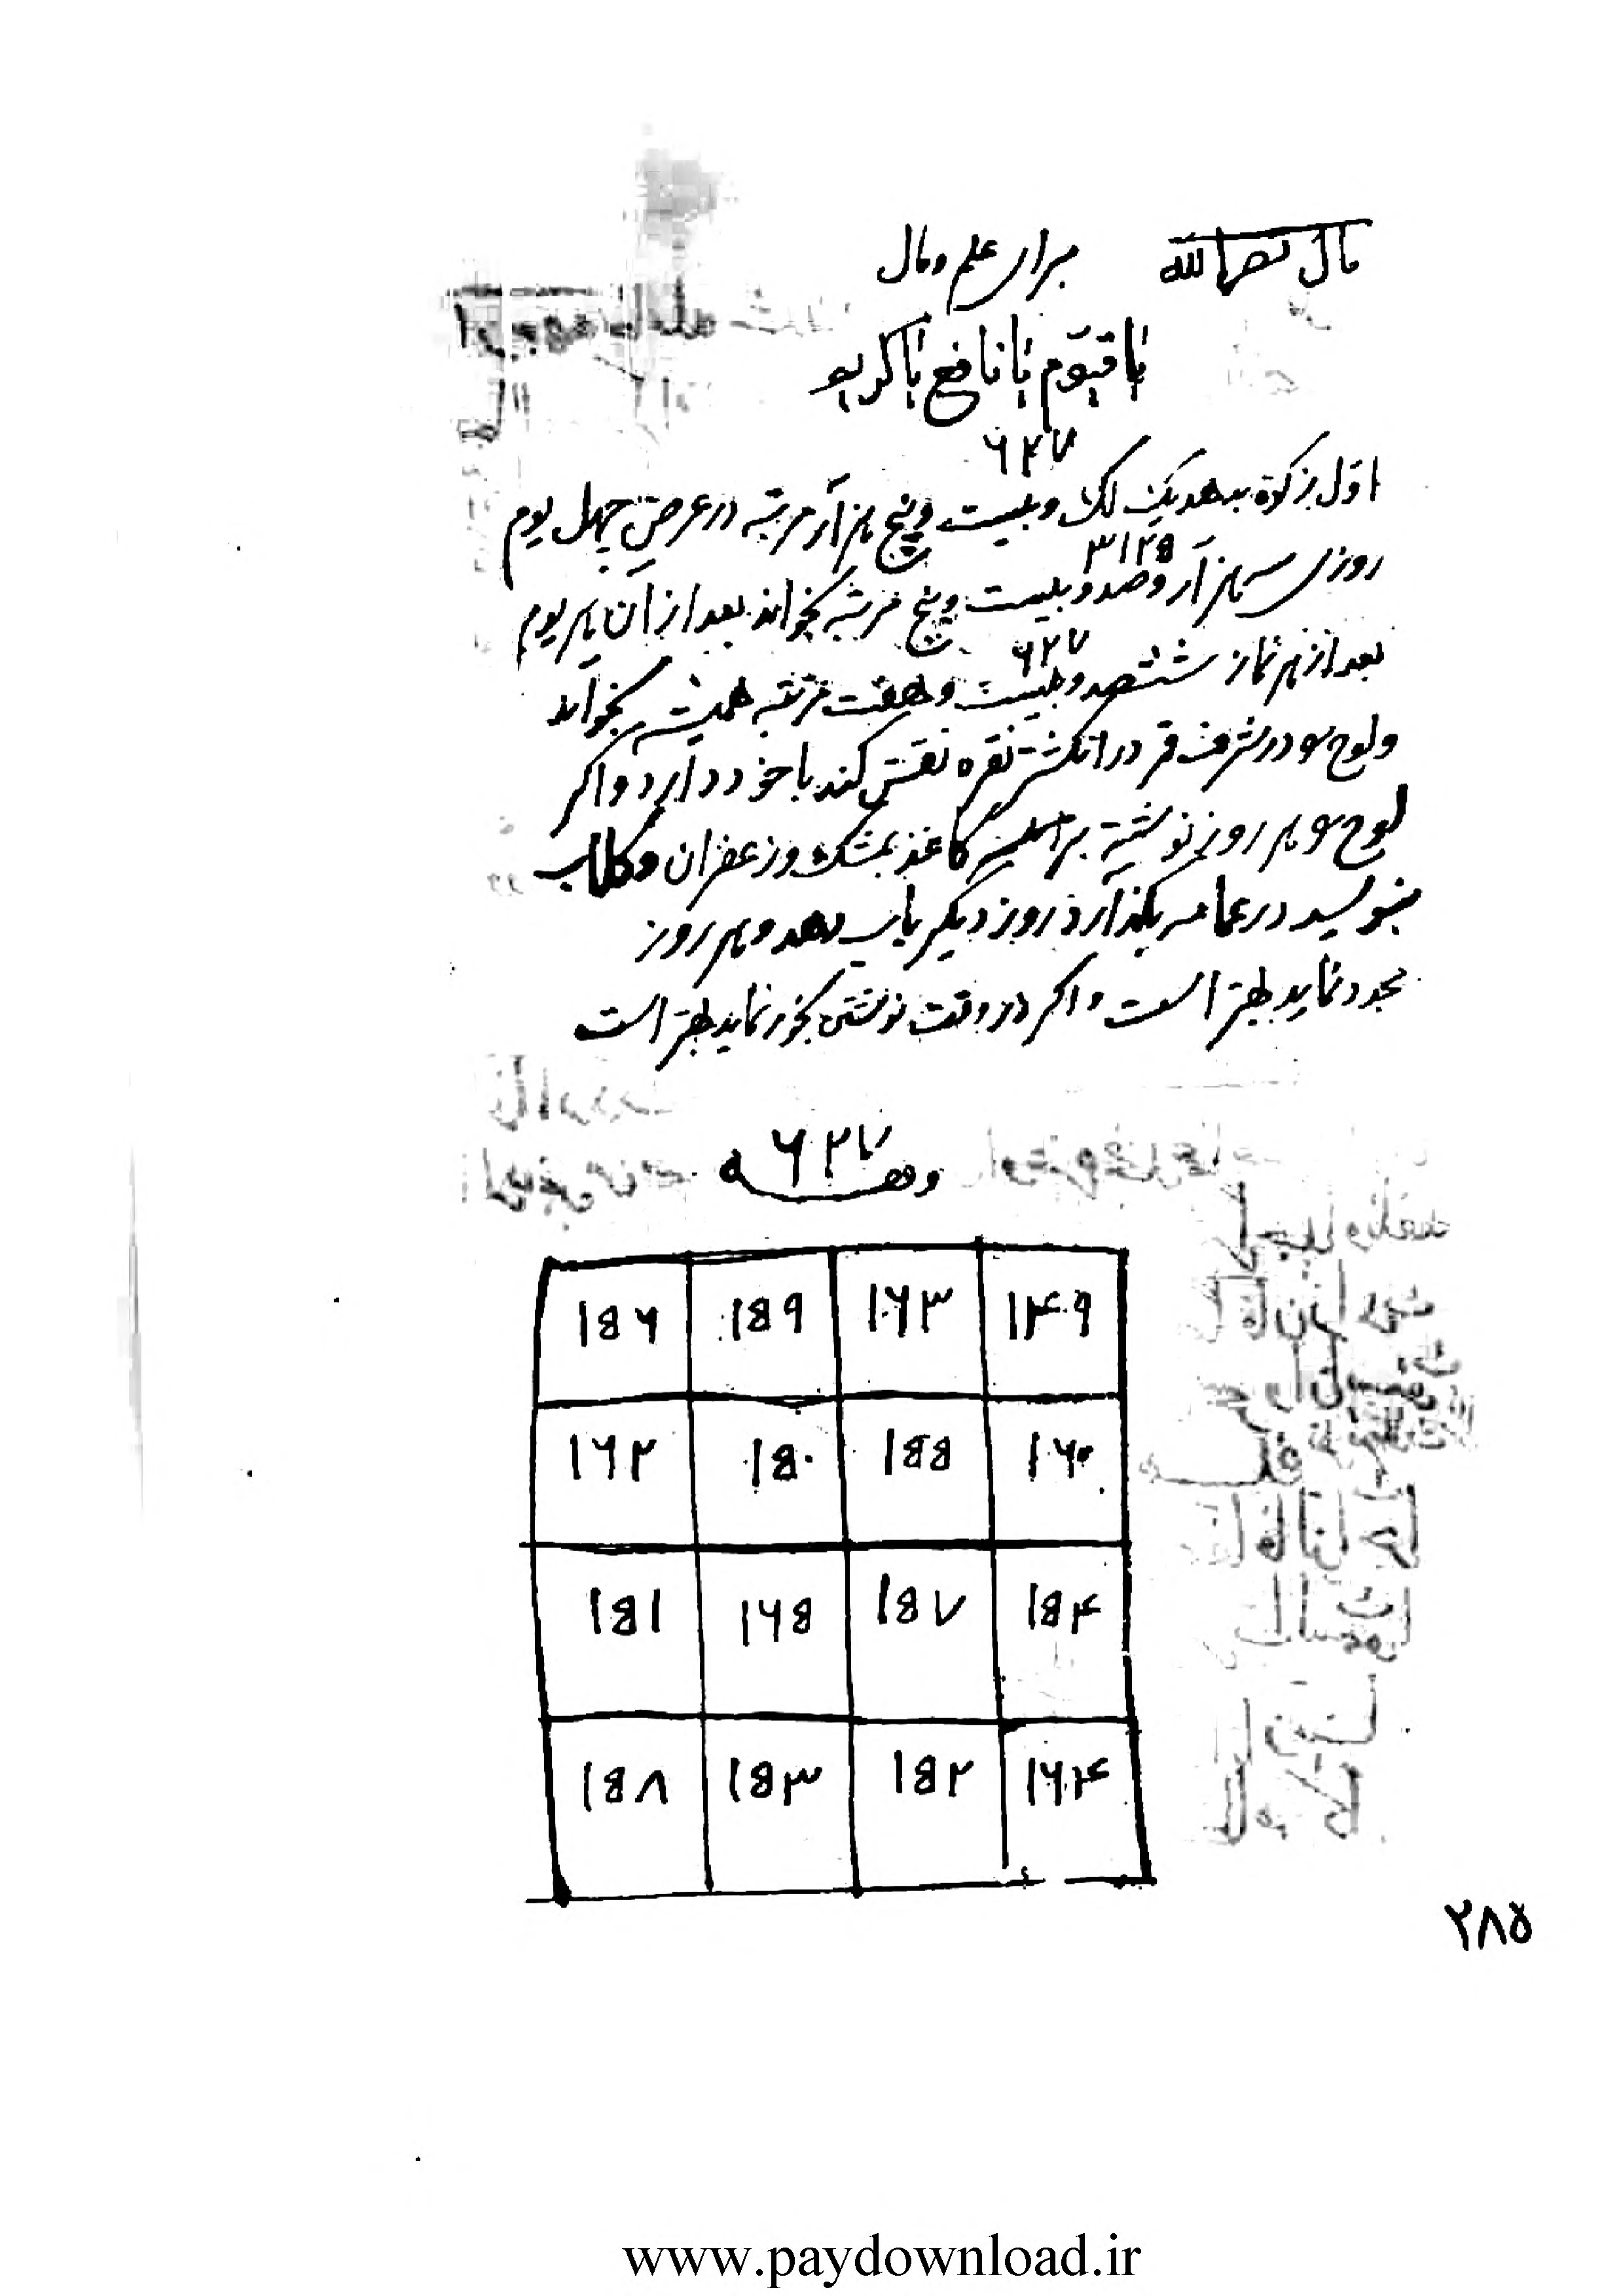 برای علم و مال
یا قیّوم یا نافع یا کریم
۶۲۷
اوّل زکوة بدهد یک لک و بیست و پنج هزار مرتبه در عرض چهل یوم
۳۱۲۵
روزی سه هزار و صد و بیست و پنج مرتبه بخواند بعد از آن هر یوم
۶۲۷
بعد از هر نماز ششصد و بیست و هفت مرتبه همیشه بخواند
و لوح هو در شرف قمر در انگشتر نقره نقش کند با خود دارد و اگر
لوح هو هر روز نوشته کاغذ بمشک و زعفران و گلاب
بنویسد در عمامه بگذارد روز دیگر بآب دهد و هر روز
مجدد نماید بهتر است و اگر در وقت نوشتن بخور نماید بهتر است
۶۲۷
وهو
۱۵۶ ۱۵۹ ۱۶۳ ۱۴۹
۱۶۲ ۱۵۰ ۱۵۵ ۱۶۰
۱۵۱ ۱۶۵ ۱۵۷ ۱۵۴
۱۵۸ ۱۵۳ ۱۵۲ ۱۶۴
۲۸۵
www.paydownload.ir